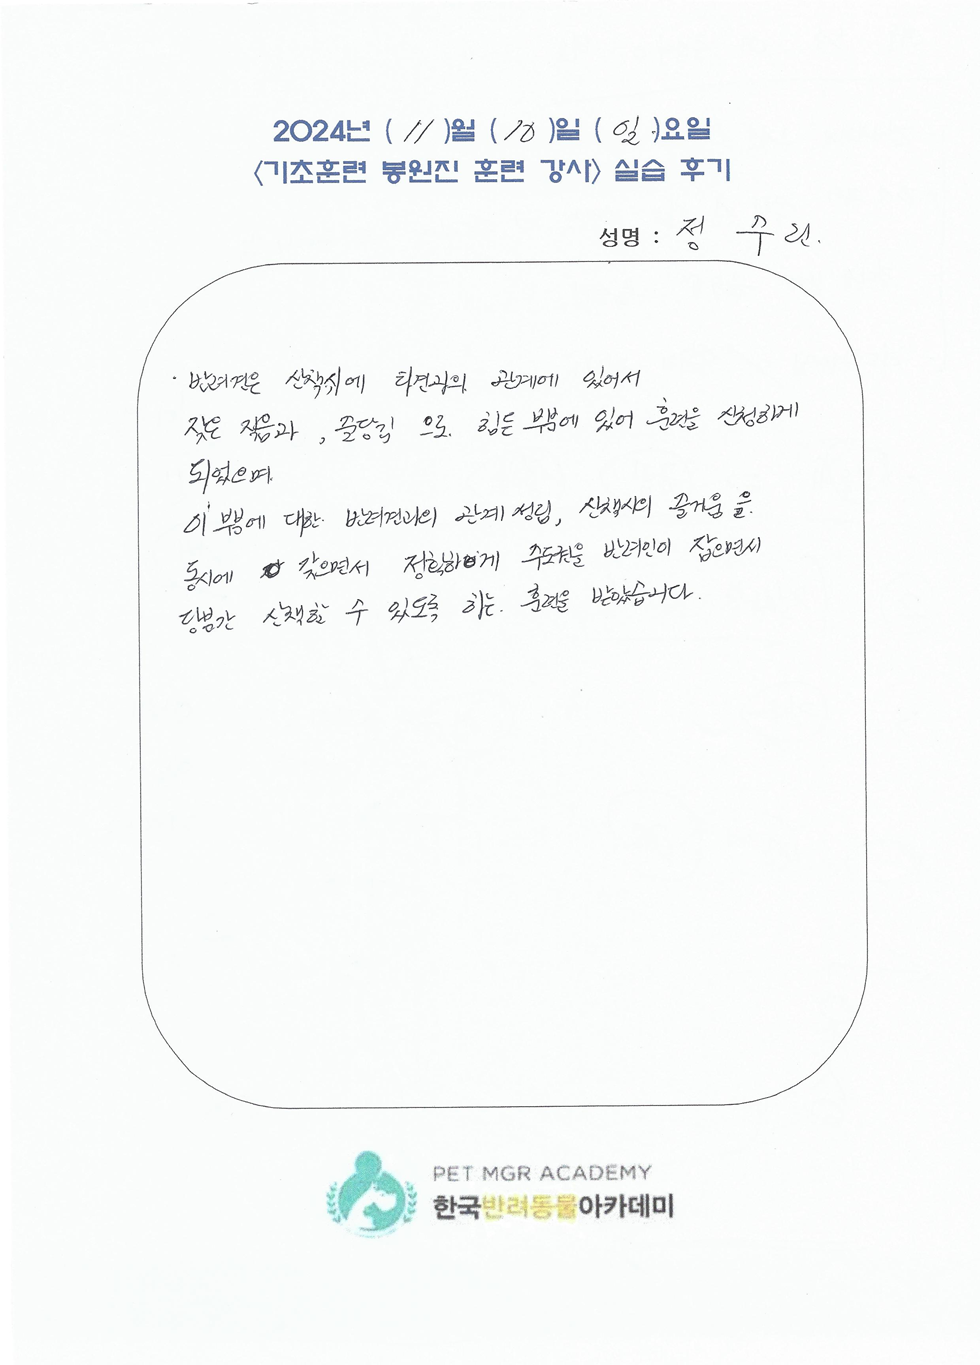 2024년 ( 11 )월 ( 10 )일 ( 일 )요일
<기초훈련 봉원진 훈련 강사> 실습 후기
성명 : 정 주 린.
· 반려견은 산책시에 타견과의 관계에 있어서
잦은 짖음과 , 줄당김 으로. 힘든 부분에 있어 훈련을 신청하게
되었으며.
이 부분에 대한 반려견과의 관계 정립, 산책시의 즐거움 을.
동시에 갖으면서 정확하게 주도권을 반려인이 잡으면서
산책할 수 있도록 하는. 훈련을 받았습니다.
PET MGR ACADEMY
한국반려동물아카데미